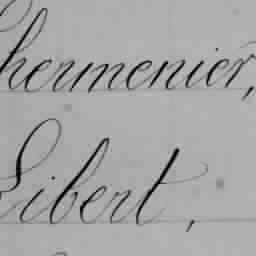 Chermenier,
Libert,